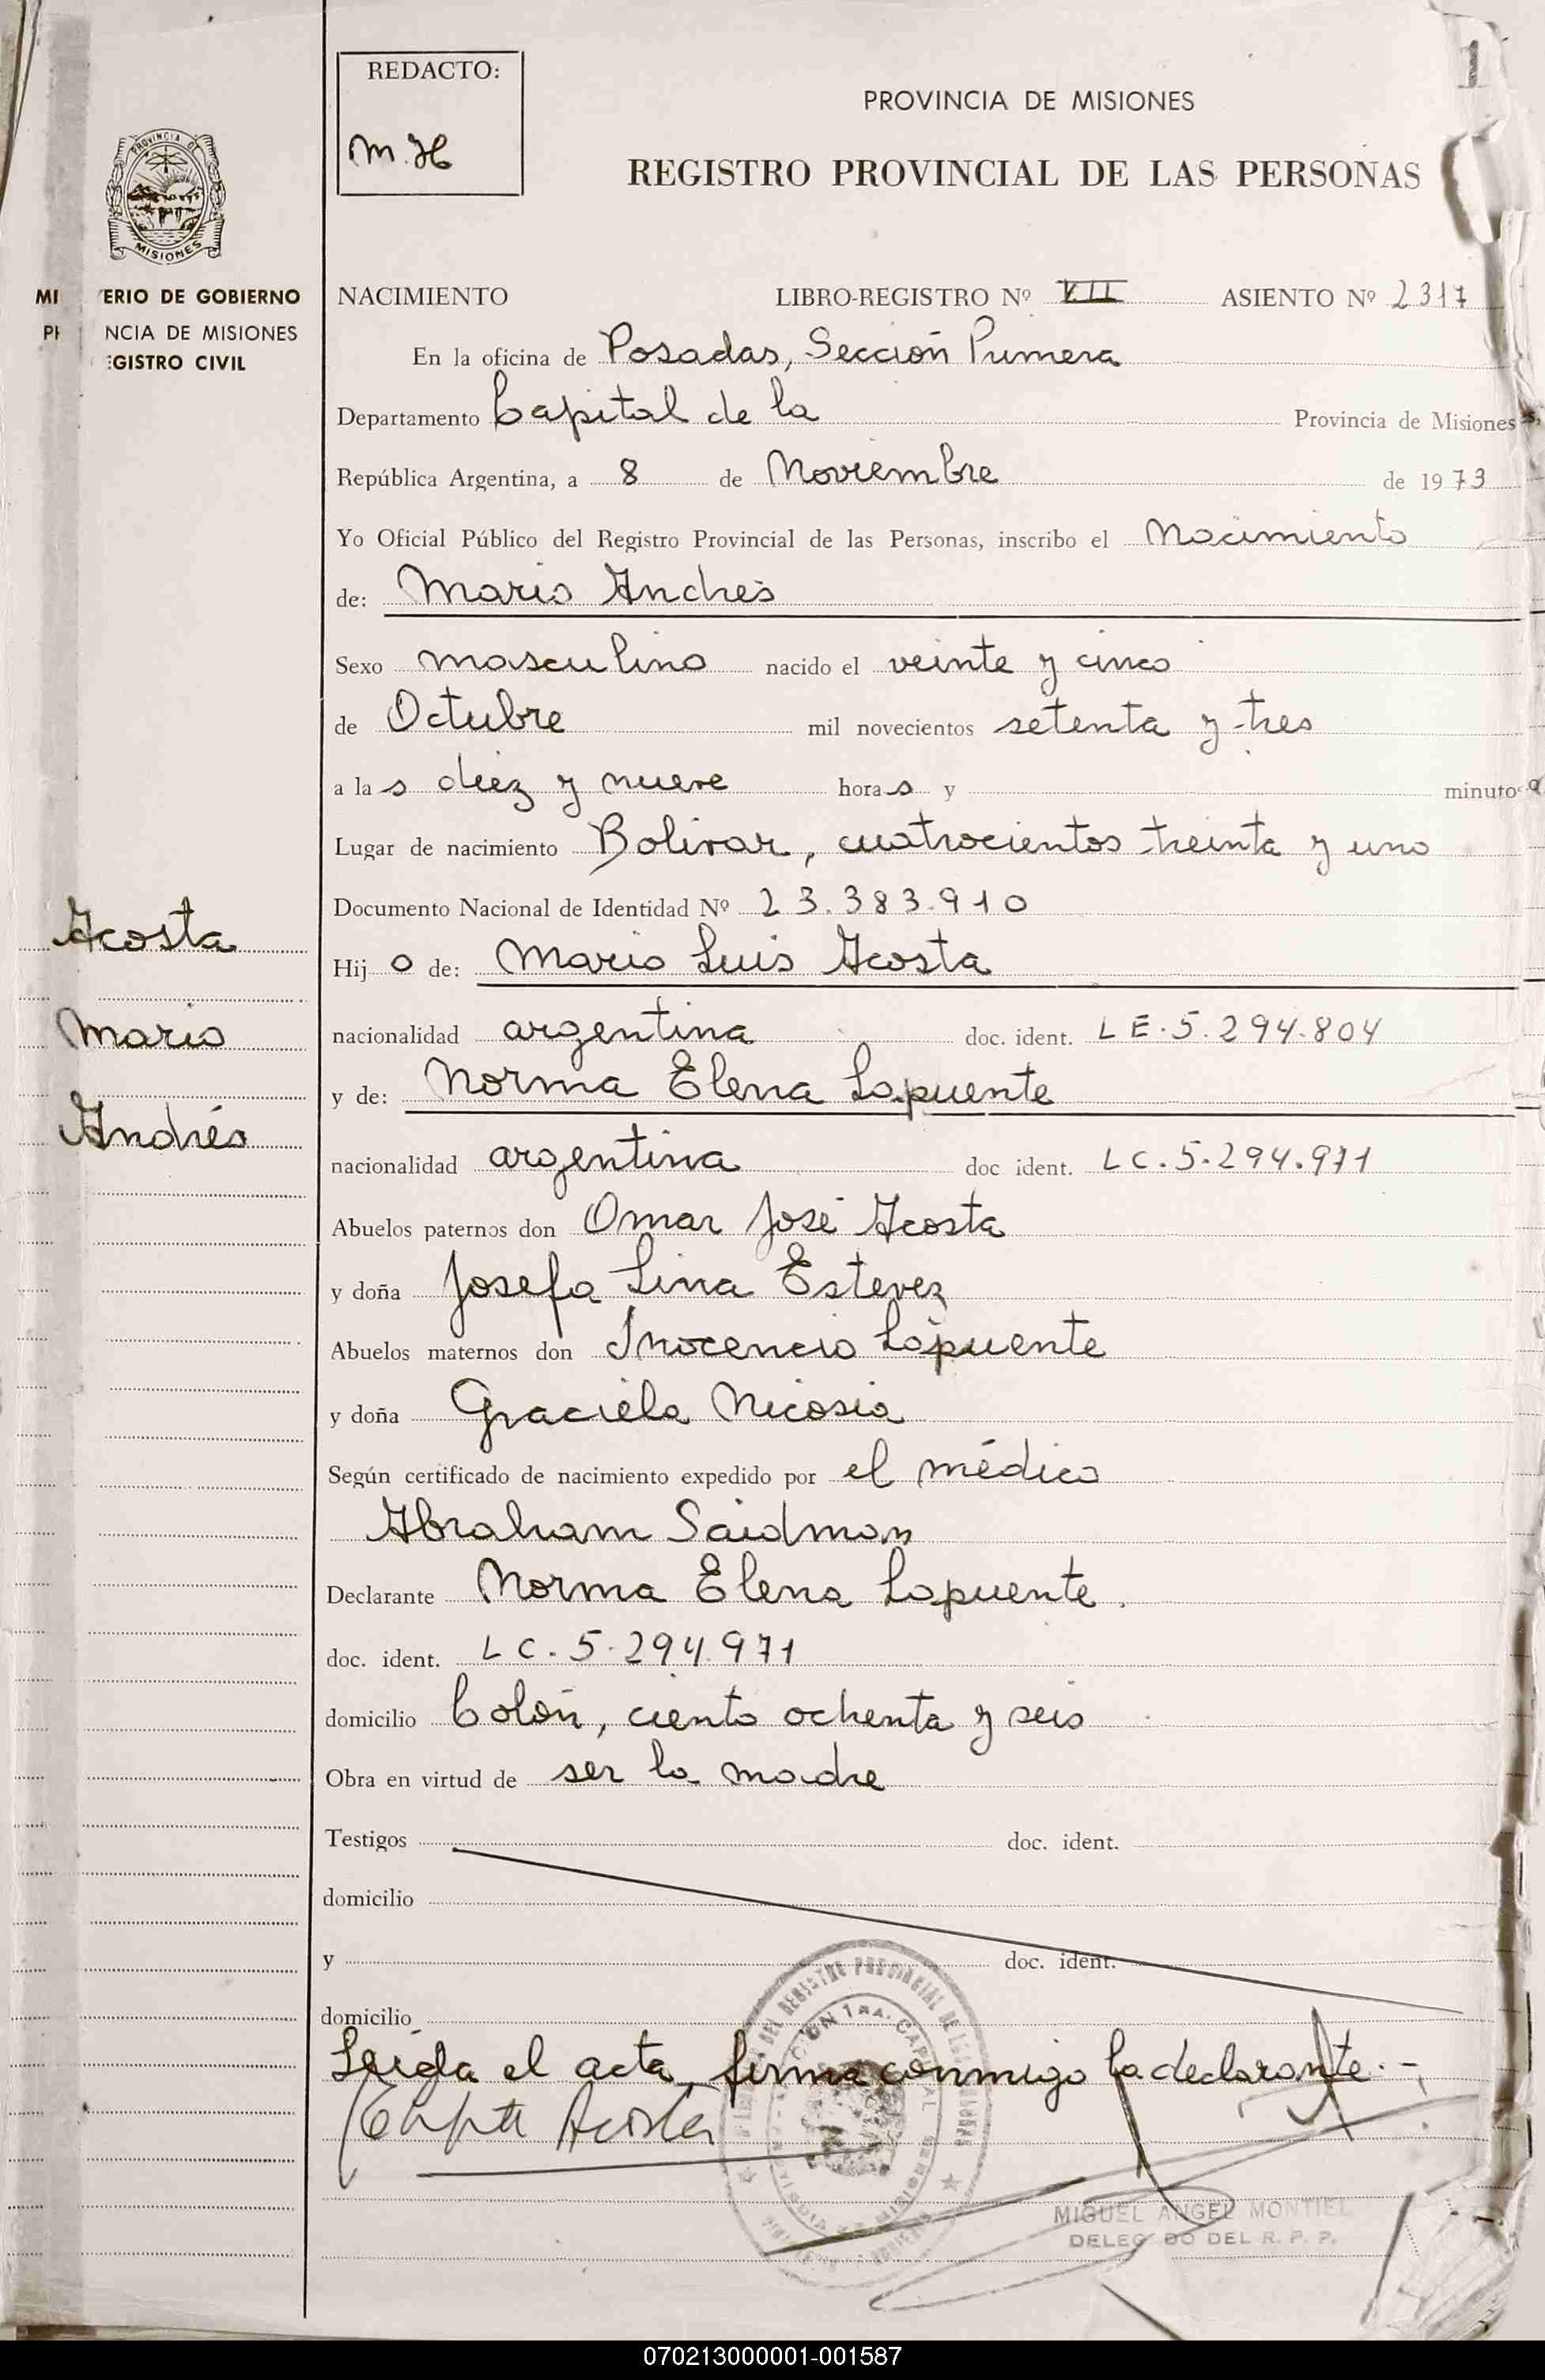 1
REDACTO:
M.H
PROVINCIA DE MISIONES
REGISTRO PROVINCIAL DE LAS PERSONAS
PROVINCIA DE
MISIONES
MI ERIO DE GOBIERNO
NCIA DE MISIONES
GISTRO CIVIL
NACIMIENTO LIBRO-REGISTRO Nº VII ASIENTO Nº 2317
En la oficina de Posadas, Sección Primera
Departamento Capital de la Provincia de Misiones,
República Argentina, a 8 de Noviembre de 1973
Yo Oficial Público del Registro Provincial de las Personas, inscribo el Nacimiento
de: Mario Andrés
Sexo masculino nacido el veinte y cinco
de Octubre mil novecientos setenta y tres
a las diez y nueve horas y minutos
Lugar de nacimiento Bolívar, cuatrocientos treinta y uno
Documento Nacional de Identidad Nº 23.383.910
Acosta
Hijo de: Mario Luis Acosta
Mario
nacionalidad argentina doc. ident. LE.5.294.804
y de: Norma Elena Lapuente
Andrés
nacionalidad argentina doc ident. LC.5.294.971
Abuelos paternos don Omar José Acosta
y doña Josefa Lina Estevez
Abuelos maternos don Inocencio Lapuente
y doña Graciela Nicosia
Según certificado de nacimiento expedido por el médico
Abraham Saidman
Declarante Norma Elena Lapuente.
doc. ident. LC.5.294.971
domicilio Colón, ciento ochenta y seis
Obra en virtud de ser la madre
Testigos doc. ident.
domicilio
y doc. ident.
domicilio
Leída el acta, firma conmigo la declarante.-
Acosta
MIGUEL ANGEL MONTIEL
DELEG DO DEL R. P. P.
070213000001-001587